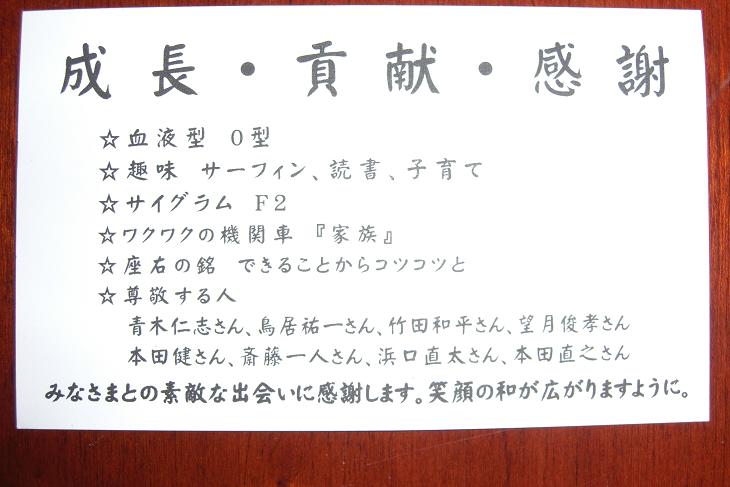 成長・貢献・感謝
☆血液型　O型
☆趣味　サーフィン、読書、子育て
☆サイグラム　F2
☆ワクワクの機関車『家族』
☆座右の銘　できることからコツコツと
☆尊敬する人
青木仁志さん、鳥居祐一さん、竹田和平さん、望月俊孝さん
本田健さん、斎藤一人さん、浜口直太さん、本田直之さん
みなさまとの素敵な出会いに感謝します。笑顔の和が広がりますように。